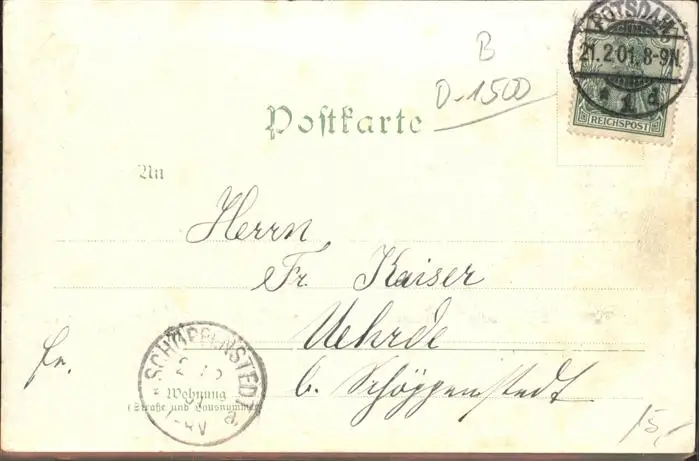 POTSDAM
21.2.01.8-9N.
1 d
REICHSPOST
B
D-1500
Postkarte
An
Herrn
Fr. Kaiser
Uehrde
fr.
b. Schöppenstedt
SCHÖPPENSTEDT
Wohnung
(Straße und Hausnummer)
15,-